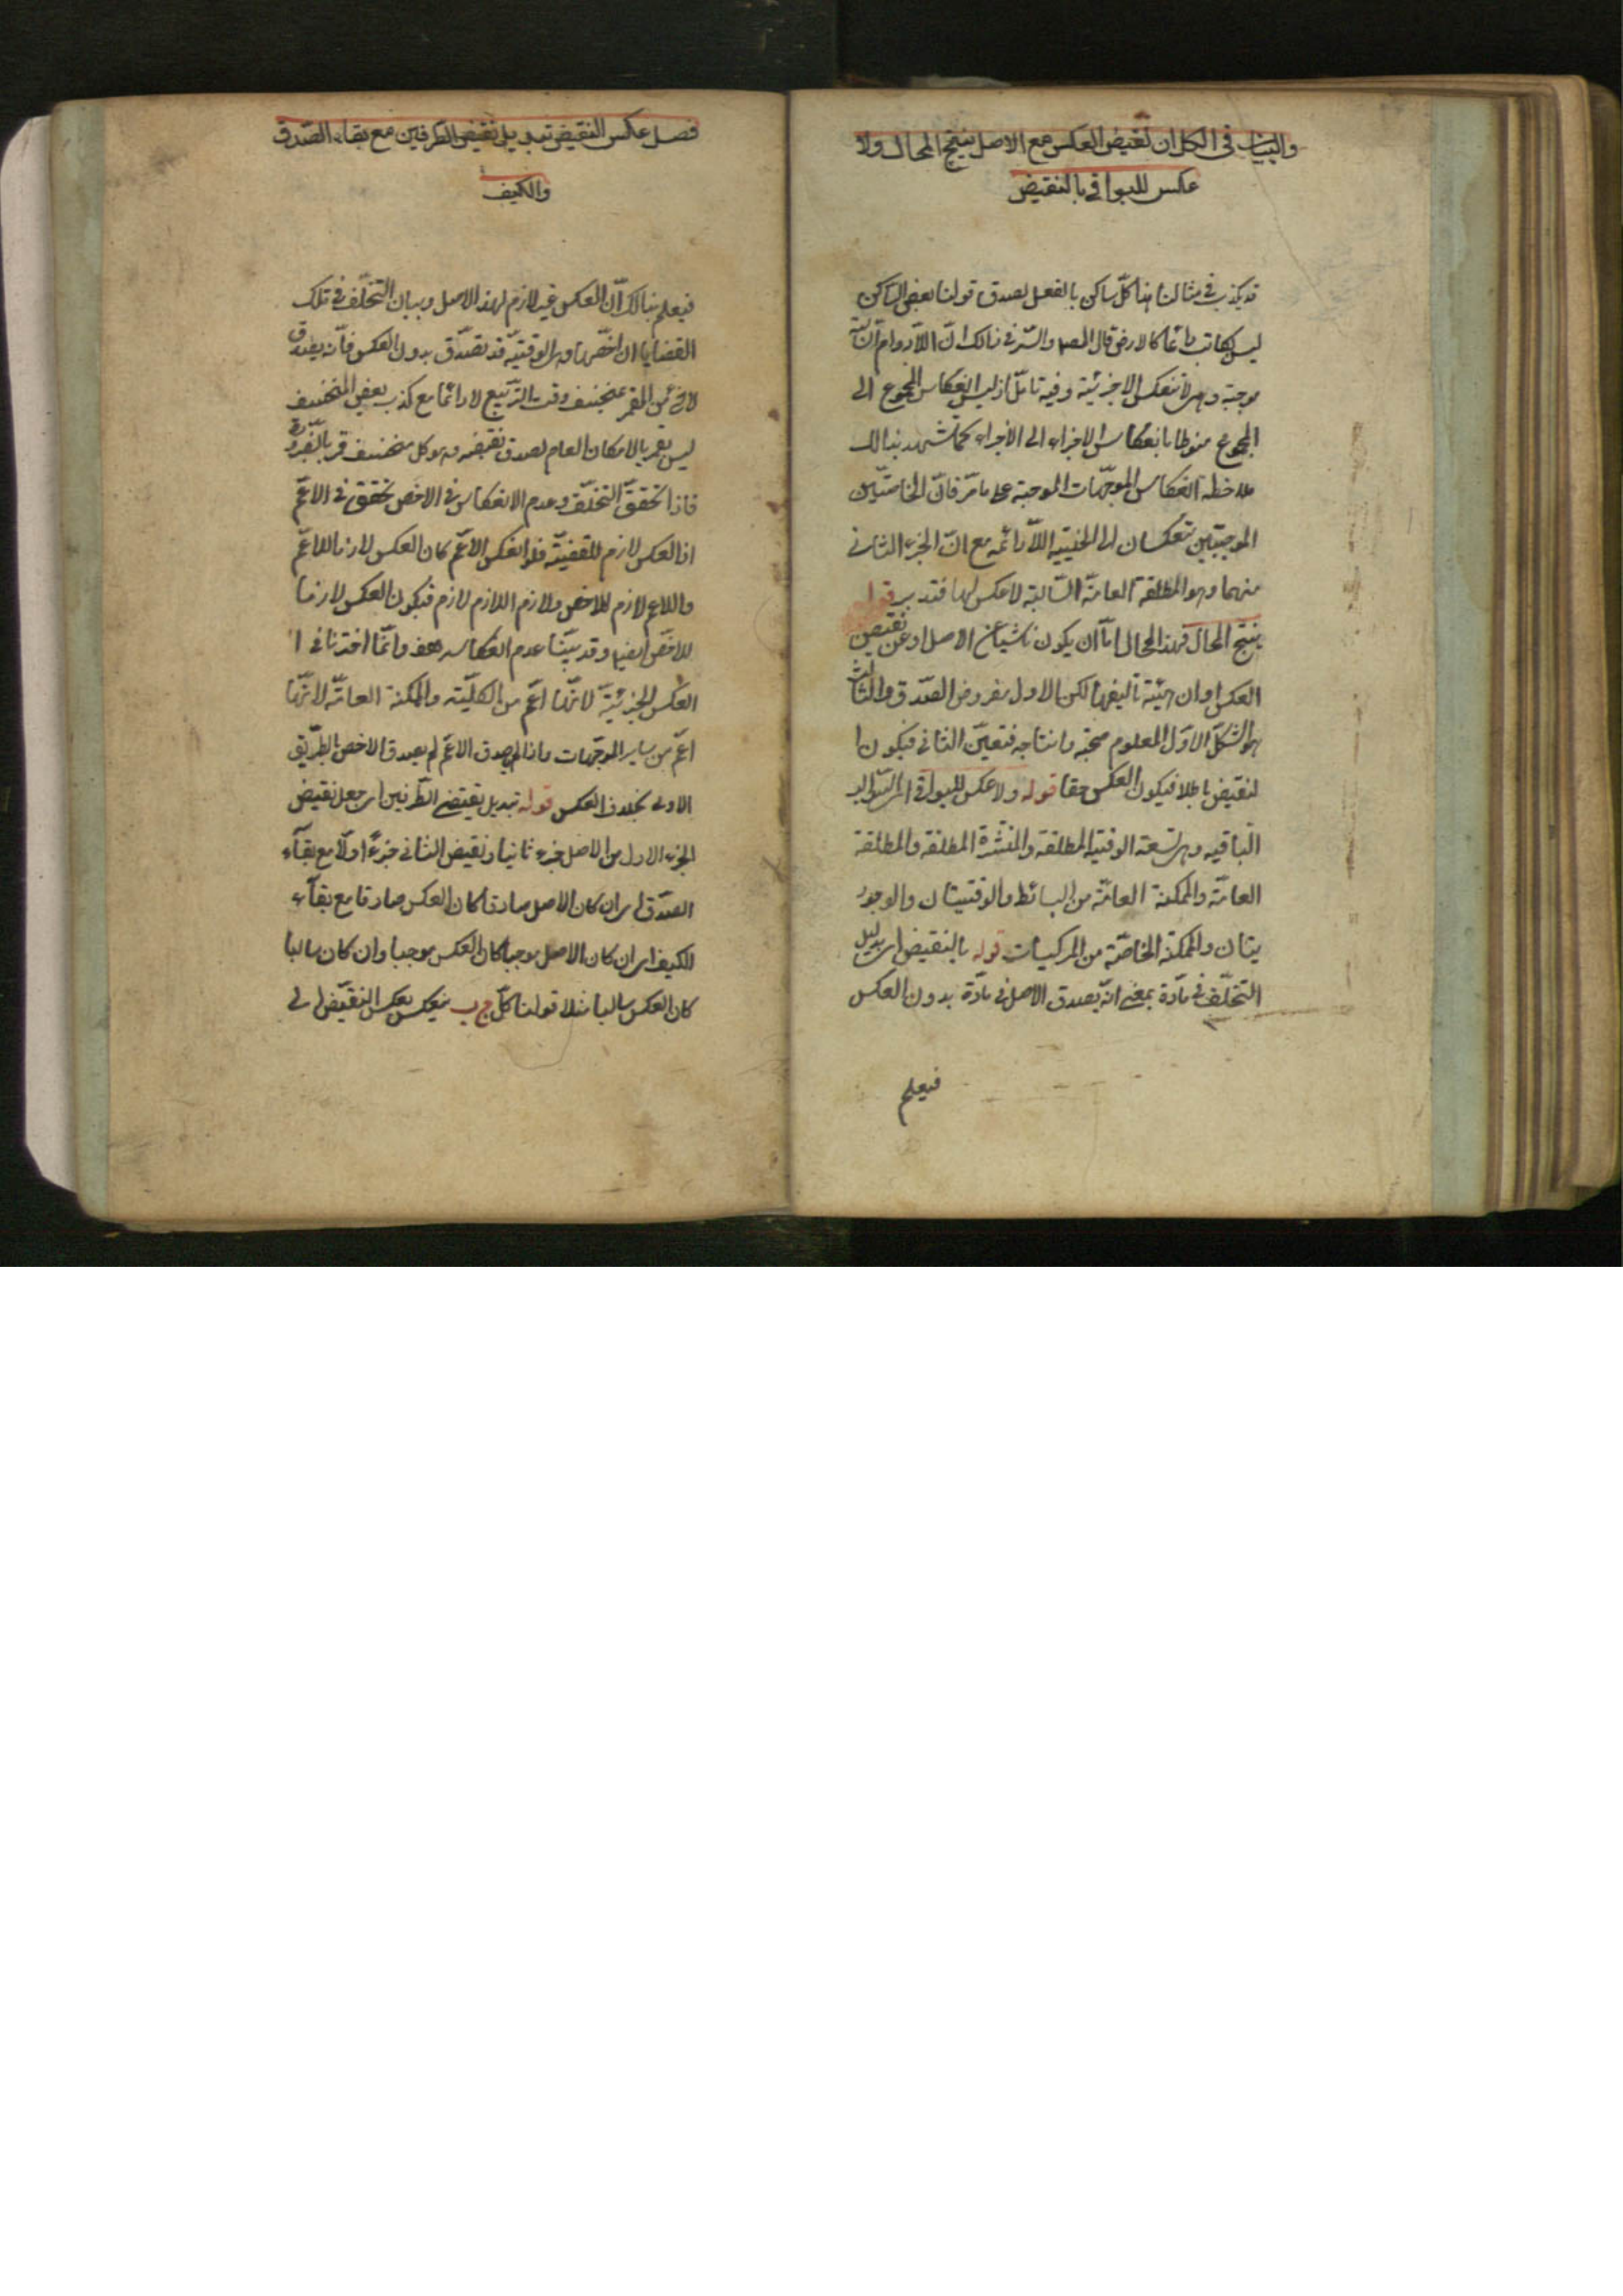 والبيان فى الكل ان نقيض العكس مع الاصل ينتج المحال ولا
عكس للبواقى بالنقيض
قد يكذب فى مثالنا هذا كل ساكن بالفعل لصدق قولنا بعض الساكن
ليس بكاتب دائما كالارض قال المصـ والسر فى ذالك ان اللادوام سالبة
موجبة وهى لا تنعكس الا جزئية وفيه تامل اذ ليس انعكاس المجموع الى
المجموع منوطا بانعكاس الاجزاء الى الاجزاء كما يشهد بذالك
ملاحظة انعكاس الموجهات الموجبة على ما مر فان الخاصتين
الموجبتين تنعكسان الى الحينية اللادائمه مع ان الجزء الثانى
منهما وهو المطلقة العامة السالبة لا عكس لها فتدبر قوله
ينتج المحال فهذا المحال اما ان يكون ناشيا عن الاصل او عن نقيض
العكس او ان هيئة تاليفها لكن الاول مفروض الصدق والثالث
هو الشكل الاول المعلوم صحته وانتاجه فتعين الثانى فيكون ا
لنقيض باطلا فيكون العكس حقا قوله ولا عكس للبواقى اى السوالب
الباقيه وهى تسعة الوقتية المطلقة والمنتشرة المطلقة والمطلقة
العامة والممكنة العامة من البسائط والوقتيتان والوجود
يتان والممكنة الخاصة من المركبات قوله بالنقيض اى بدليل
التخلف فى مادة بمعنى انه يصدق الاصل فى مادة بدون العكس
فيعلم
فصل عكس النقيض تبديل نقيض الطرفين مع بقاء الصدق
والكيف
فيعلم بذالك ان العكس غير لازم لهذا الاصل وبيان التخلف فى تلك
القضايا ان اخصها وهى الوقتية قد تصدق بدون العكس فانه يصدق
لا شئ من القمر بمنخسف وقت التربيع لا دائما مع كذب بعض المنخسف
ليس بقمر بالامكان العام لصدق نقيضه وهو كل منخسف قمر بالضرورة
فاذا تحقق التخلف وعدم الانعكاس فى الاخص تحقق فى الاعم
اذ العكس لازم للقضية فلو انعكس الاعم كان العكس لازما للاعم
والاعم لازم للاخص ولازم اللازم لازم فيكون العكس لازما
للاخص ايضا وقد بينا عدم انعكاسه هف وانما اخترنا فى ا
العكس الجزئية لانها اعم من الكلية والممكنة العامة لانها
اعم من ساير الموجهات واذا لم يصدق الاعم لم يصدق الاخص بالطريق
الاولى بخلاف العكس قوله تبديل نقيضى الطرفين اى جعل نقيض
الجزء الاول من الاصل جزء ثانيا ونقيض الثانى جزءا اولا مع بقاء
الصدق اى ان كان الاصل صادقا كان العكس صادقا مع بقاء
الكيف اى ان كان الاصل موجبا كان العكس موجبا وان كان سالبا
كان العكس سالبا مثلا قولنا كل ج ب ينعكس بعكس النقيض الى